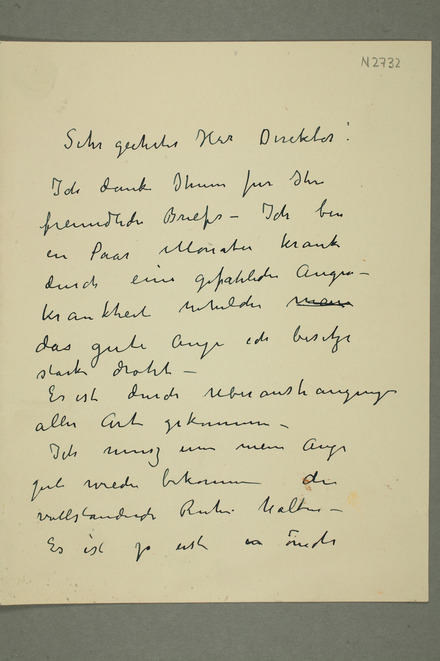 N2732
Sehr geehrter Herr Direktor!
Ich danke Ihnen für Ihr
freundliche Briefe – Ich bin
en Paar Monater krank
durch eine gefahrliche Augen–
krankheit
das gute Auge ich besitze
stark droht –
Es ist durch uberanstrangung
aller Art gekommen –
Ich musz um mein Auge
gut wieder bekommen die
vollstandiche Ruhe halten –
Es ist ja